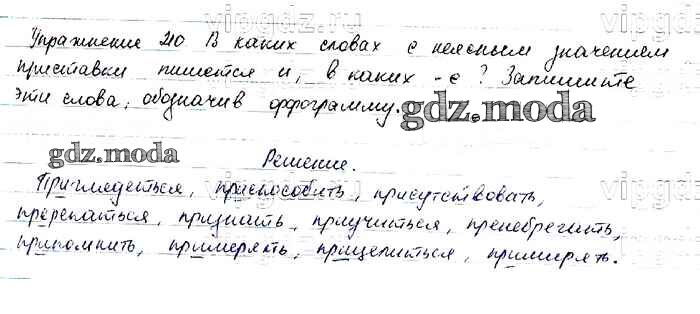 vipgdz.ru vipgdz.ru
Упражнение 210 В каких словах с неясным значением
приставки пишется и, в каких -е? Запишите
эти слова, обозначив орфограмму.
gdz.moda
gdz.moda
Решение.
Приглядеться, приспособить, присутствовать,
пререкаться, признать, приучиться, пренебрегать,
припомнить, примерять, прицепиться, примирять.